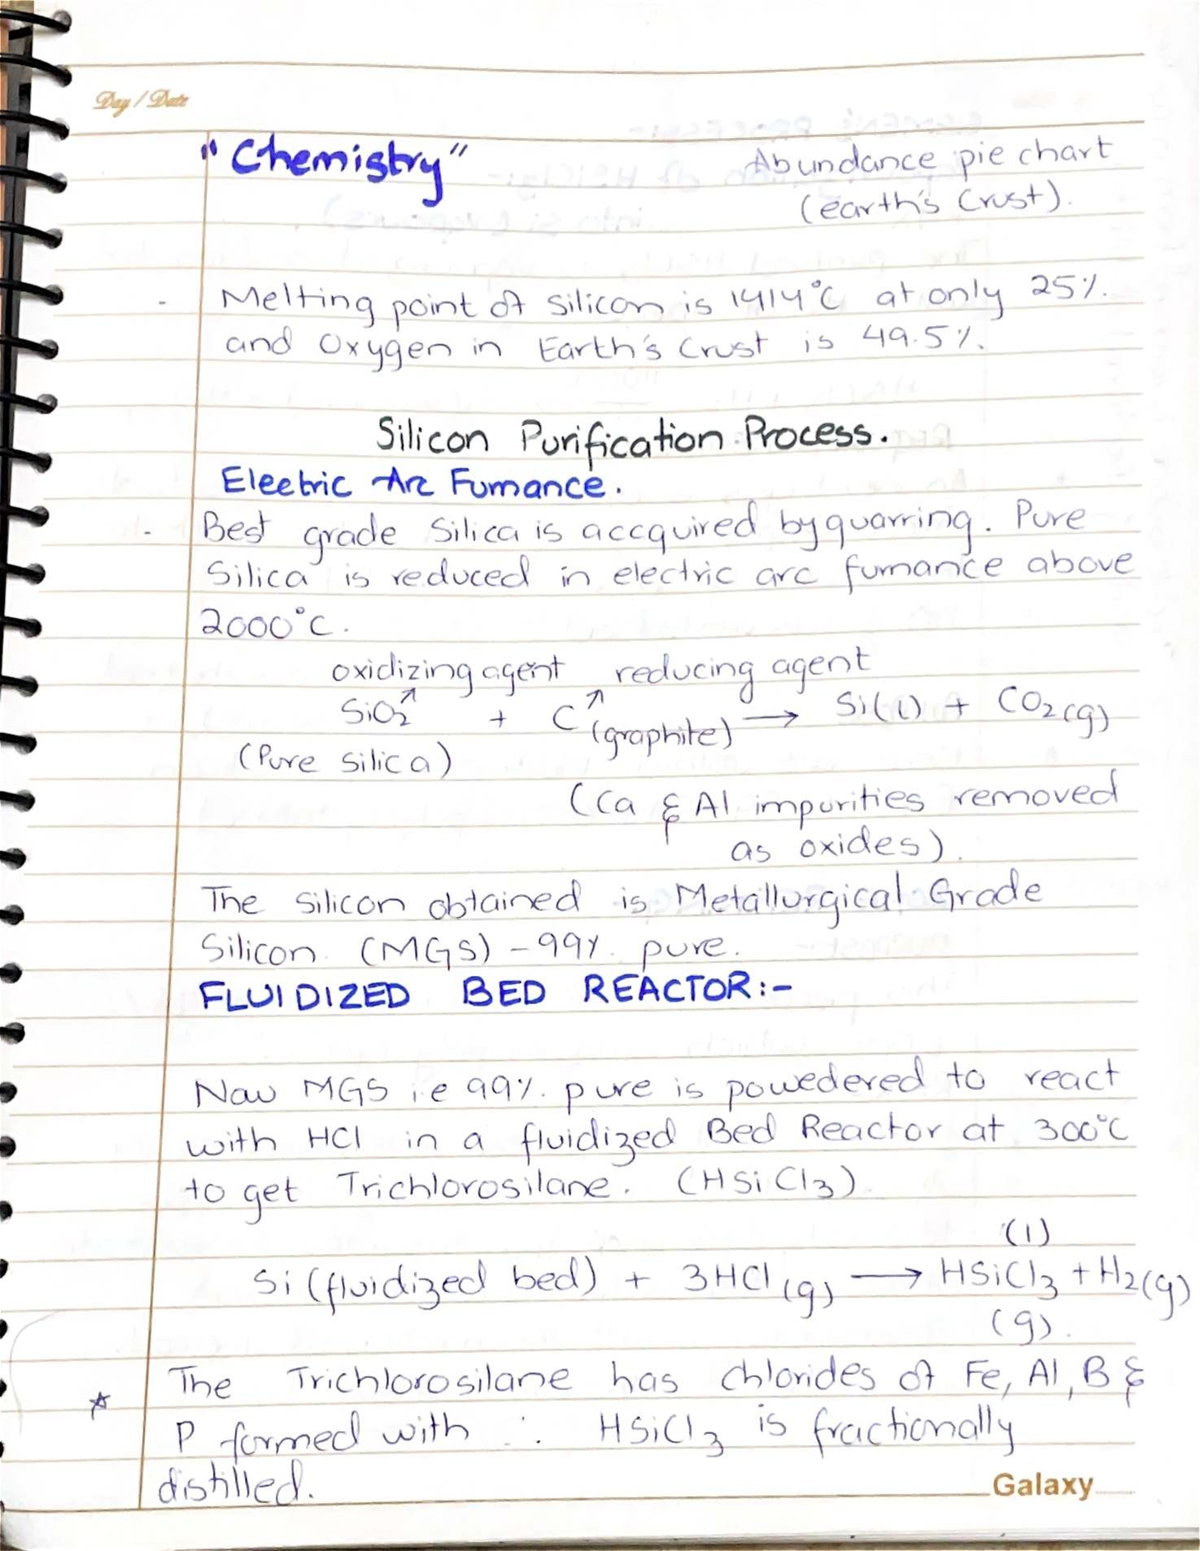 Day / Date
"Chemistry"
Abundance pie chart
(earth's Crust).
- Melting point of silicon is 1414°C at only 25%.
and Oxygen in Earth's Crust is 49.5%.
Silicon Purification Process.
Electric Arc Furnance.
- Best grade Silica is accquired by quarring. Pure
Silica is reduced in electric arc furnance above
2000°C.
oxidizing agent reducing agent
SiO2 + C (graphite) → Si(l) + CO2(g)
(Pure Silica)
(Ca & Al impurities removed
as oxides).
The Silicon obtained is Metallurgical Grade
Silicon (MGS) - 99% pure.
FLUIDIZED BED REACTOR:-
Now MGS i.e 99% pure is powedered to react
with HCl in a fluidized Bed Reactor at 300°C
to get Trichlorosilane. (HSiCl3)
(l)
Si (fluidized bed) + 3HCl (g) → HSiCl3 + H2(g)
(g).
* The Trichlorosilane has chlorides of Fe, Al, B &
P formed with ∴ HSiCl3 is fractionally
distilled.
Galaxy